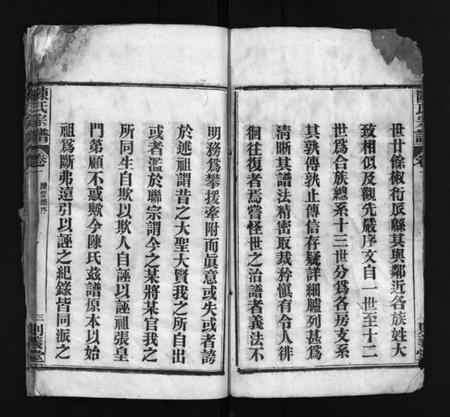 世廿餘椒衍辰緜其與鄰近各族姓大
致相似及觀先嚴序文自一世至十二
世爲合族總系十三世分爲各房支系
其孰傳孰止傳信存疑詳細臚列甚爲
清晰其譜法精密取裁矜愼有令人徘
徊往復者焉嘗怪世之治譜者義法不
明務爲攀援牽附而眞意或失或者誇
於述祖謂昔之大聖大賢我之所自出
或者濫於聯宗謂今之某將某官我之
所同生自欺以欺人自誣以誣祖張皇
門第顧不惑歟今陳氏茲譜原本以始
祖爲斷弗遠引以誣之紀錄皆同派之
陳氏宗譜
卷
三
則義堂